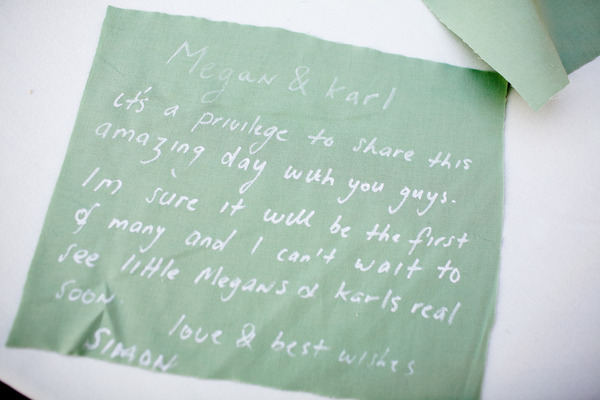 Megan & Karl
it's a privilege to share this
amazing day with you guys.
I'm sure it will be the first
of many and I can't wait to
see little Megans & Karls real
soon.
love & best wishes
SIMON